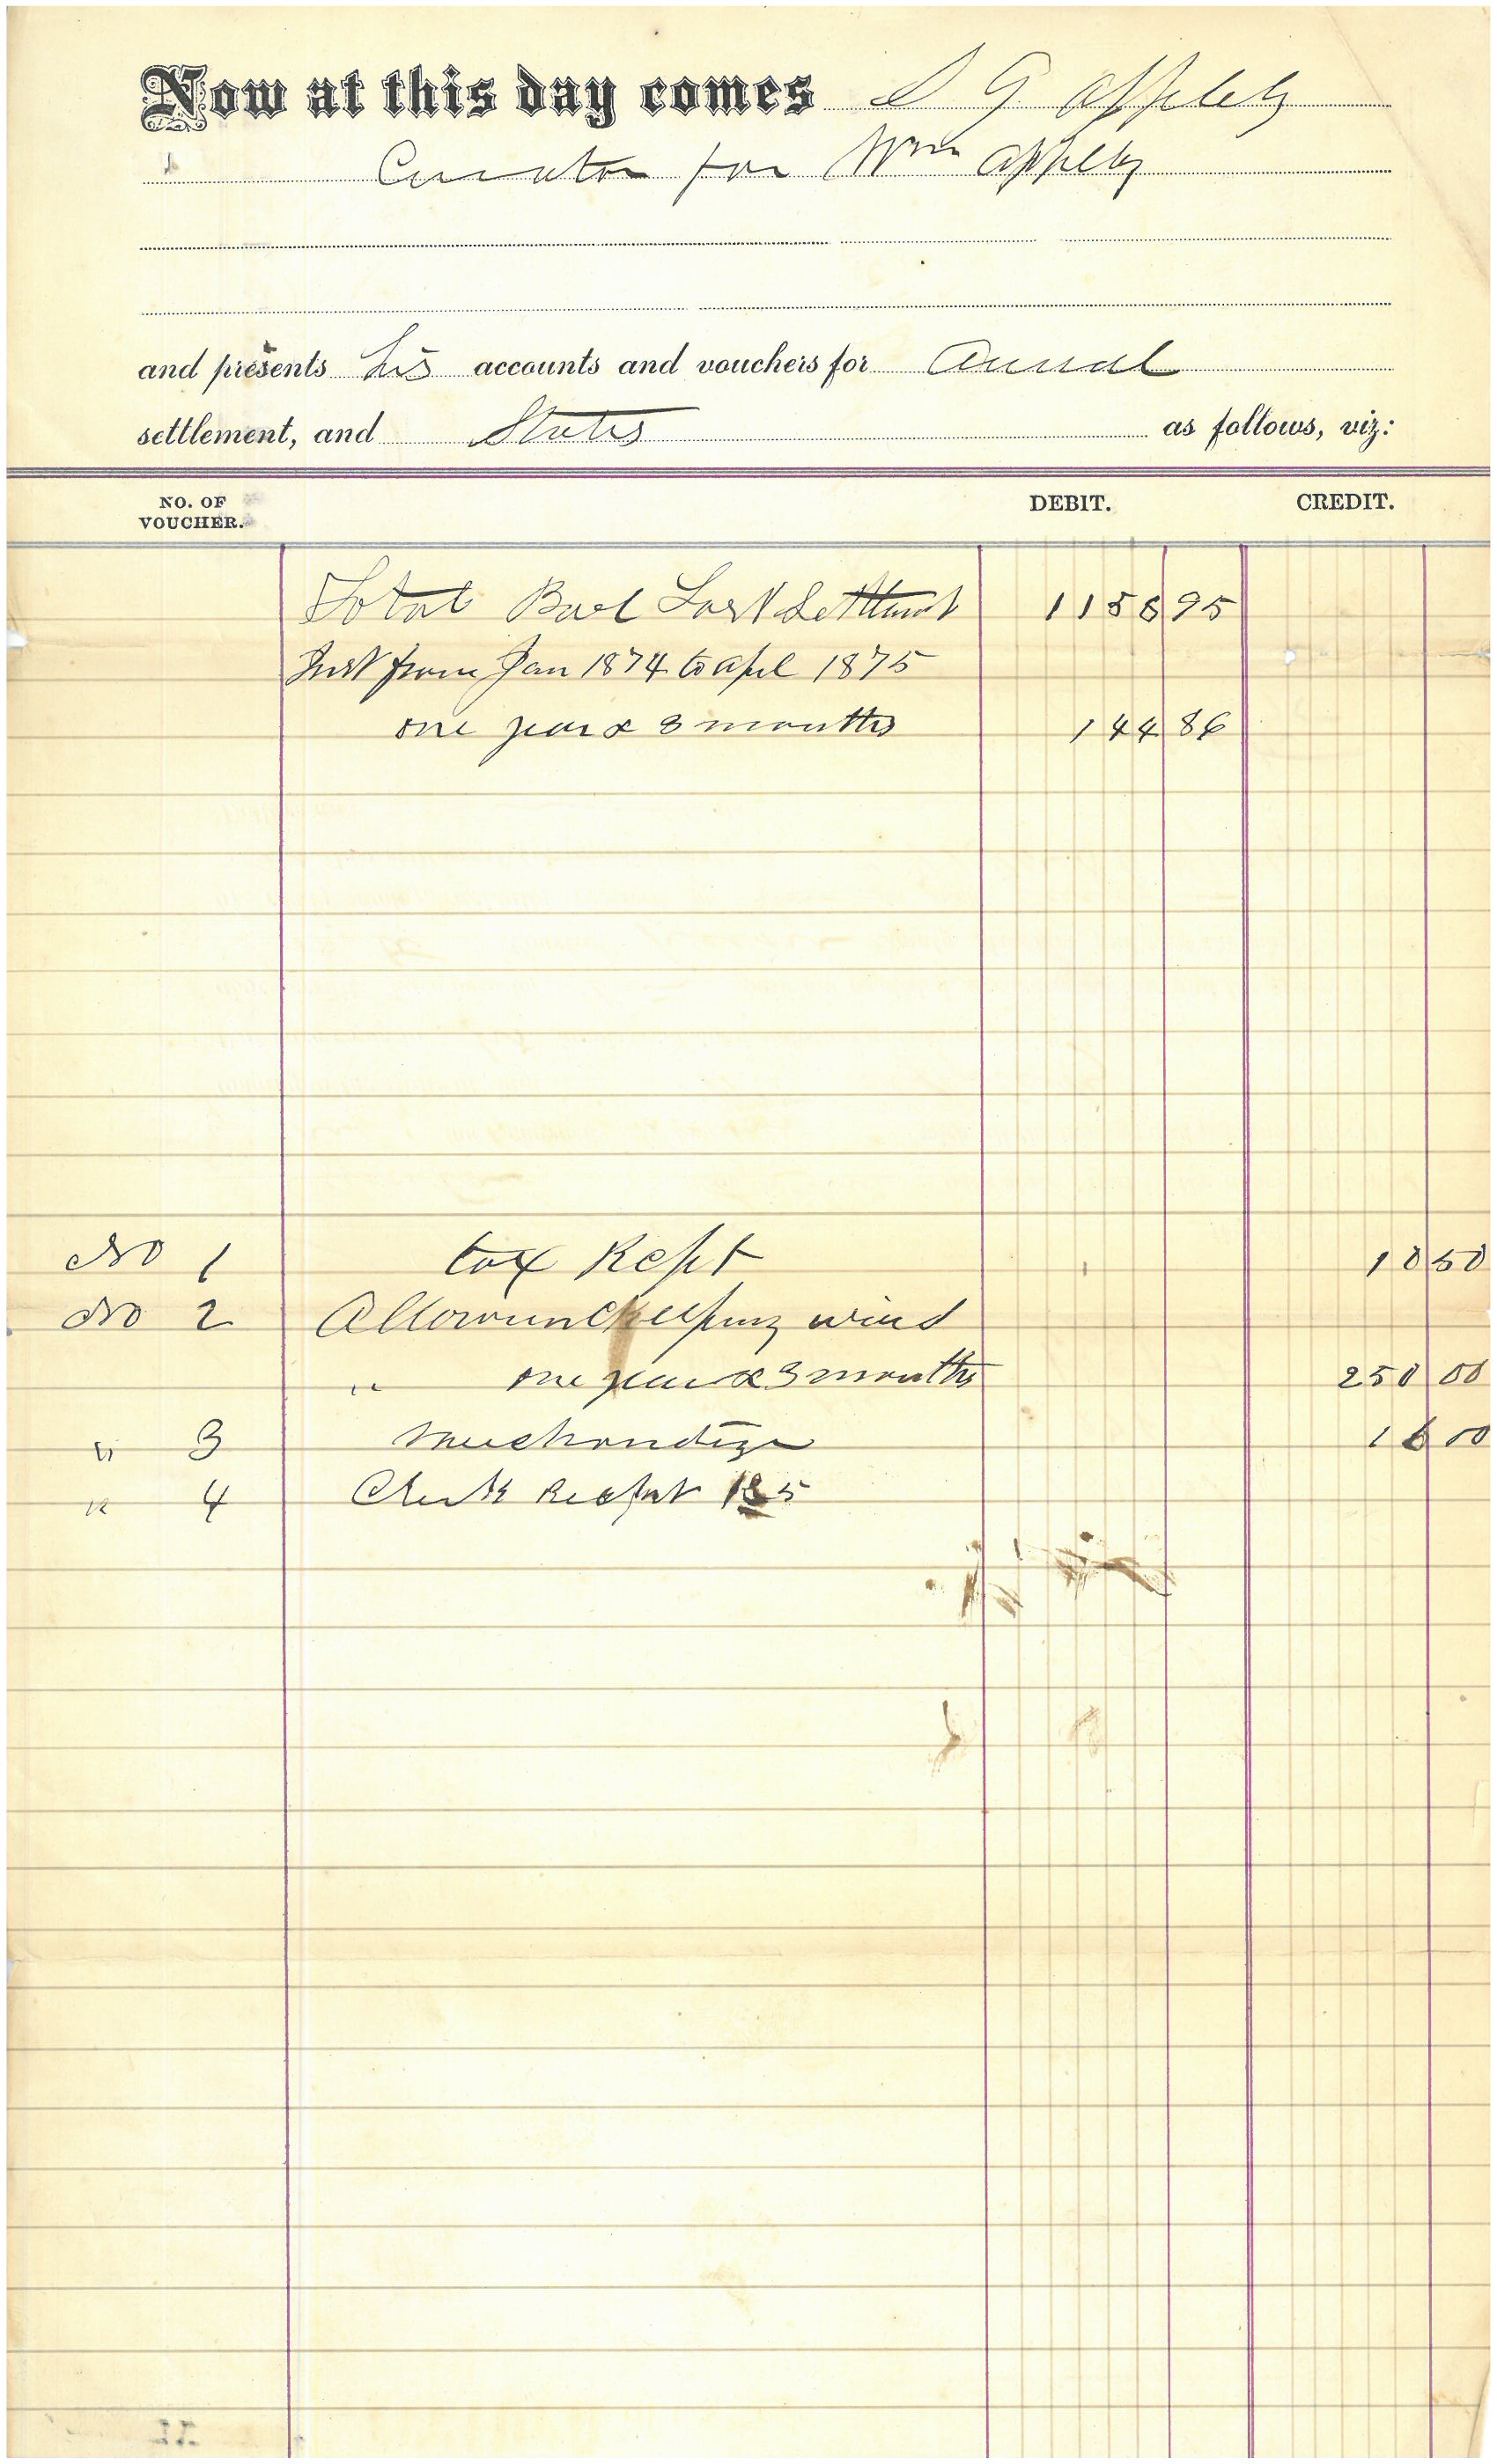 Now at this day comes S G Appleby
Curator for Wm Appleby
and presents his accounts and vouchers for Annual
settlement, and States as follows, viz:
NO. OF VOUCHER. DEBIT. CREDIT.
Total Bal Last Settlement 1158 95
Inst from Jan 1874 to apl 1875
one year & 3 months 144 86
No 1 tax Rept 10 50
No 2 Allowanc keeping
" one year & 3 months 250 00
" 3 Merchandize 16 00
" 4 Clerk Recept 185